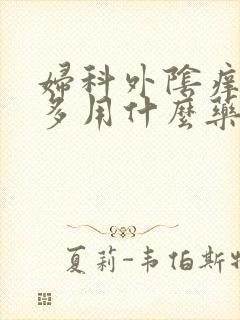 婦科外陰痒
多用什麼藥
夏莉-韦伯斯特